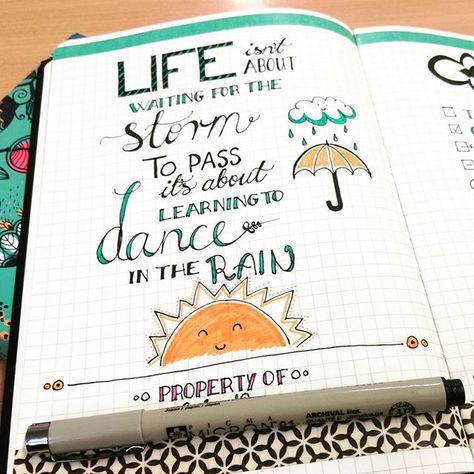 LIFE isn't
ABOUT
WAITING FOR THE
storm
TO PASS
it's about
LEARNING TO
dance
IN THE RAIN
PROPERTY OF
ARCHIVAL INK